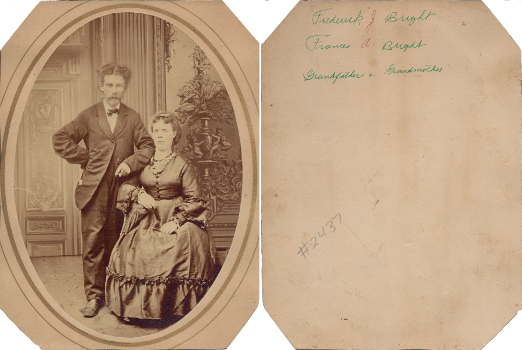 Frederick J Bright
Frances A Bright
Grandfather & Grandmother
#2437